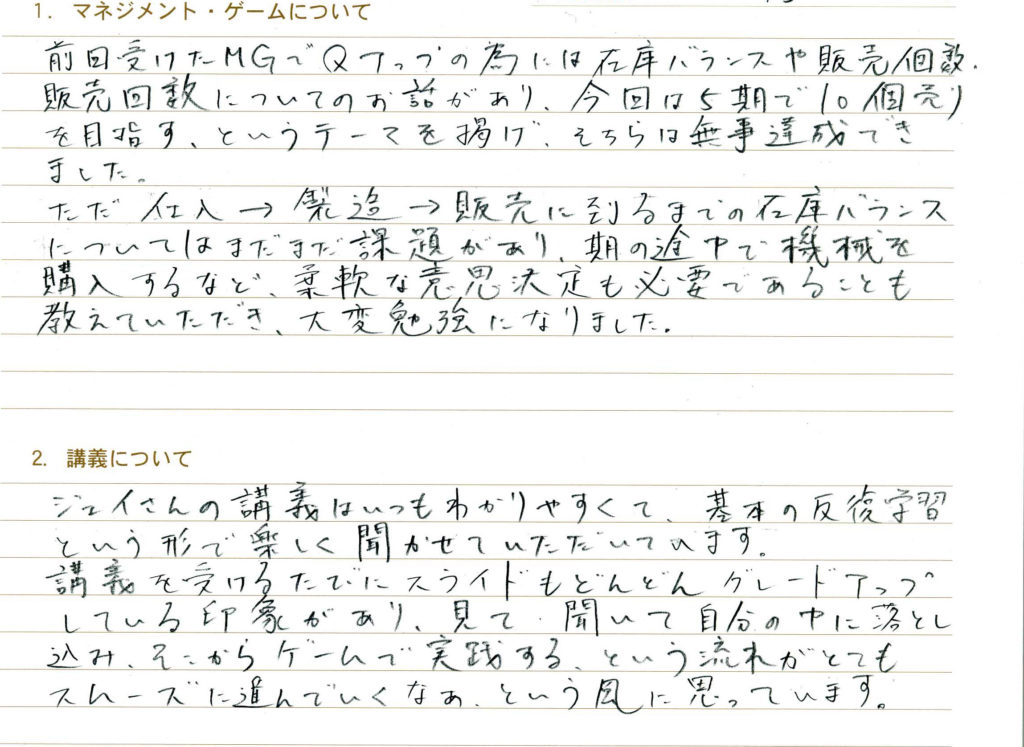 1. マネジメント・ゲームについて
前回受けたMGでQアップの為には在庫バランスや販売個数、
販売回数についてのお話があり、今回は5期で10個売り
を目指す、というテーマを掲げ、そちらは無事達成でき
ました。
ただ 仕入→製造→販売に到るまでの在庫バランス
についてはまだまだ課題があり、期の途中で機械を
購入するなど、柔軟な意思決定も必要であることも
教えていただき、大変勉強になりました。
2. 講義について
ジェイさんの講義はいつもわかりやすくて、基本の反復学習
という形で楽しく聞かせていただいています。
講義を受けるたびにスライドもどんどんグレードアップ
している印象があり、見て 聞いて自分の中に落とし
込み、そこからゲームで実践する、という流れがとても
スムーズに進んでいくなぁ、という風に思っています。